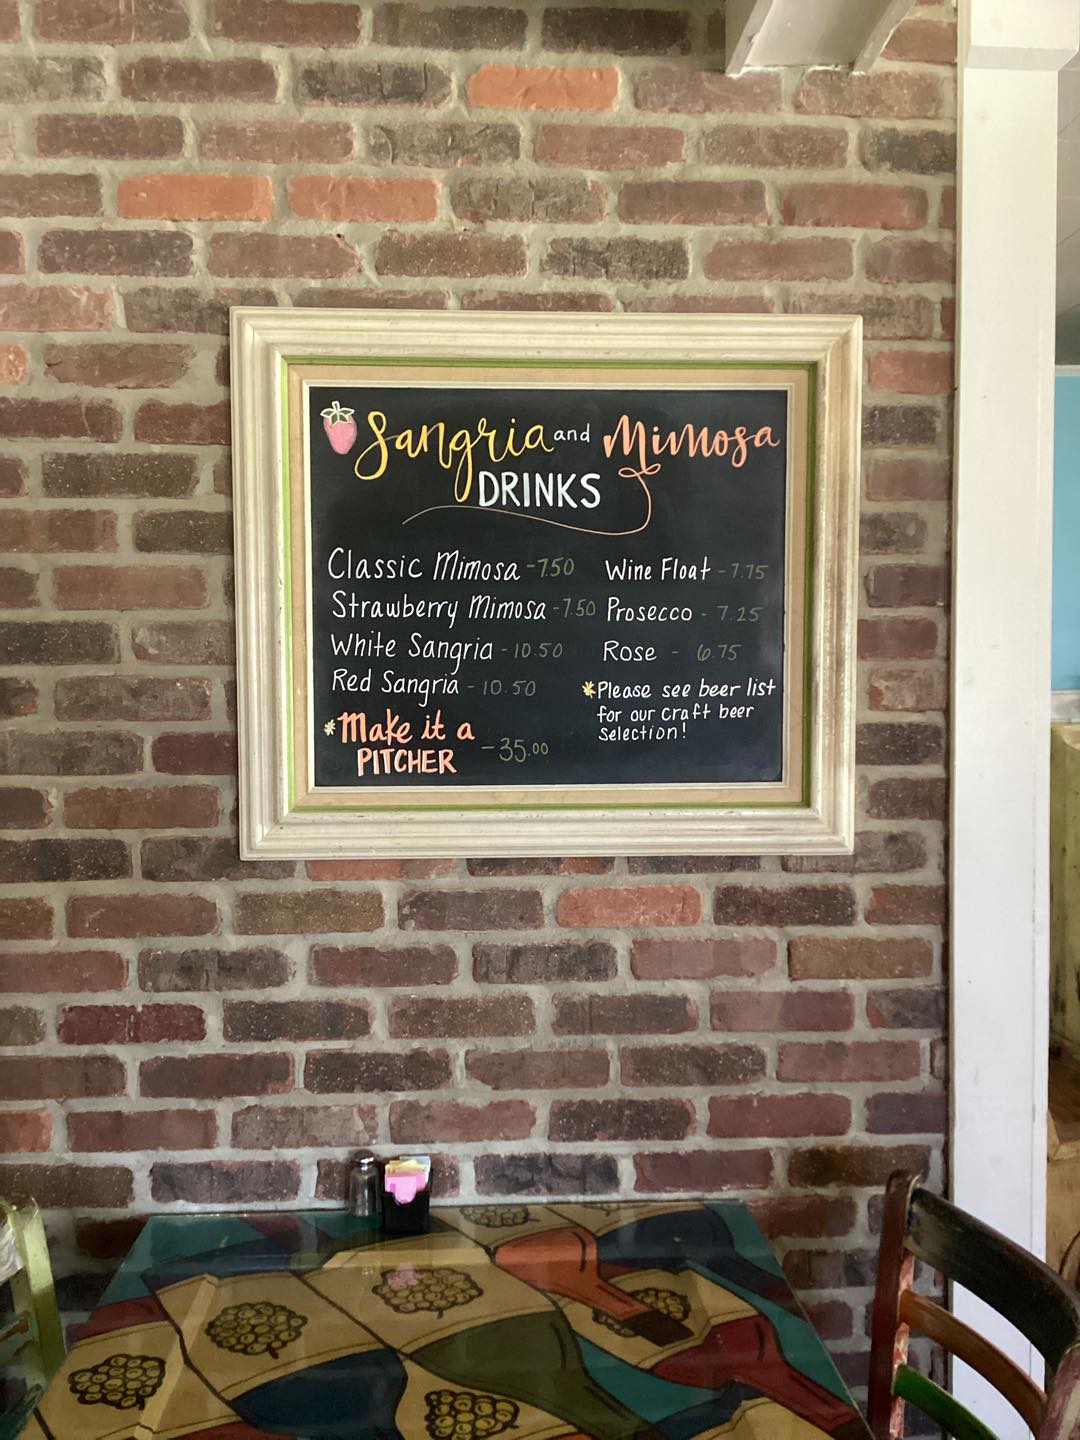 Sangria and Mimosa
DRINKS
Classic Mimosa - 7.50
Strawberry Mimosa - 7.50
White Sangria - 10.50
Red Sangria - 10.50
*Make it a
PITCHER - 35.00
Wine Float - 7.75
Prosecco - 7.25
Rose - 6.75
*Please see beer list
for our craft beer
selection!